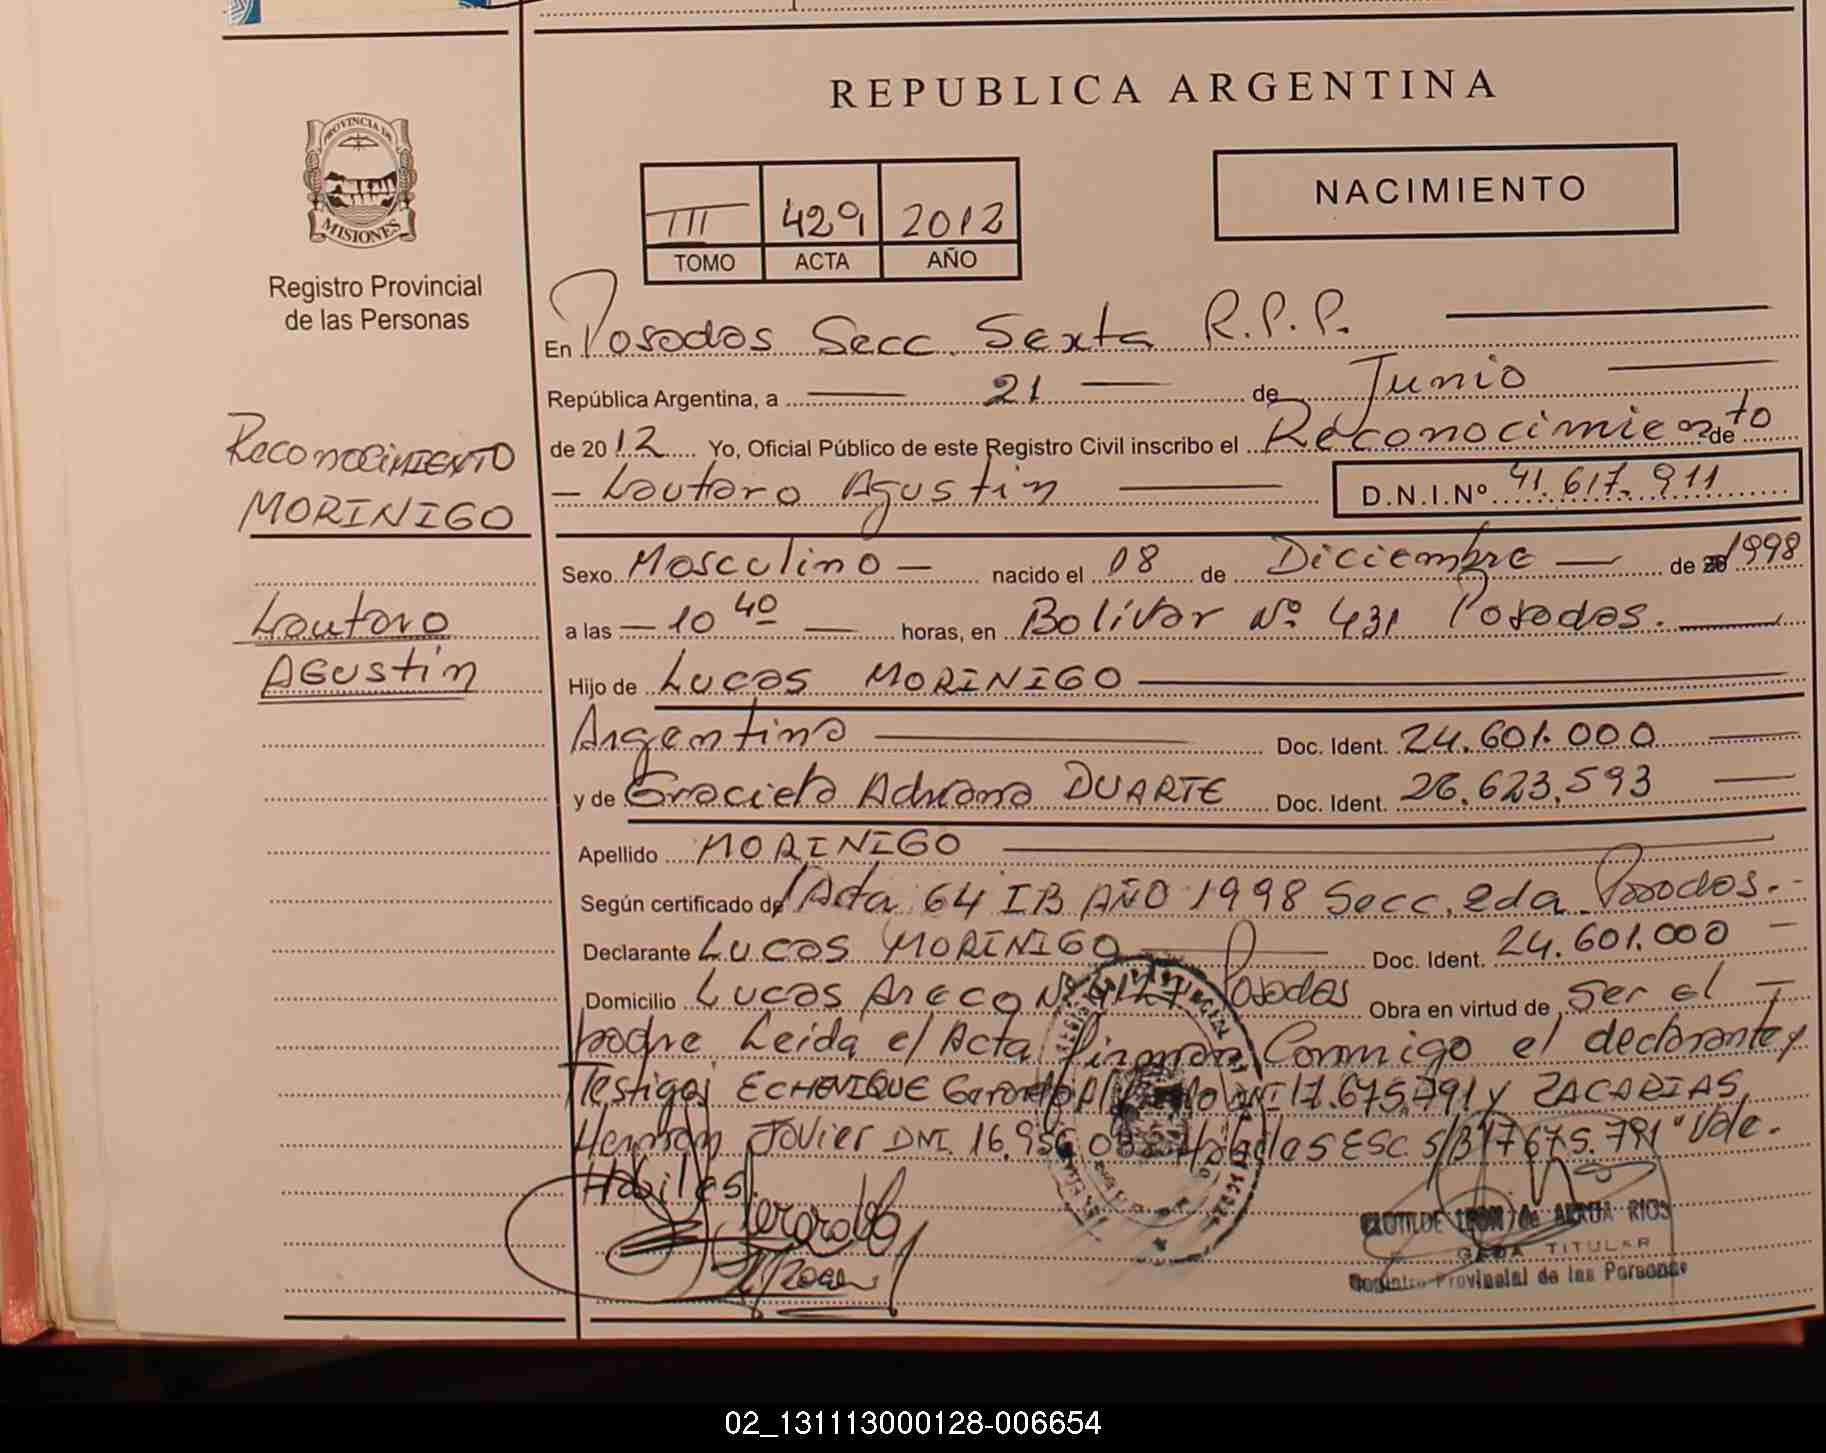 REPUBLICA ARGENTINA
PROVINCIA DE
MISIONES
Registro Provincial
de las Personas
NACIMIENTO
III 429 2012
TOMO ACTA AÑO
En Posadas Secc. Sexta R.P.P.
República Argentina, a 21 de Junio
de 2012 Yo, Oficial Público de este Registro Civil inscribo el Reconocimiento de
Lautaro Agustin D.N.I.Nº 41.617.911
Reconocimiento
MORINIGO
Lautaro
Agustin
Sexo Masculino nacido el 08 de Diciembre de 1998
a las 10 40 horas, en Bolívar Nº 431 Posadas.
Hijo de Lucas MORINIGO
Argentino Doc. Ident. 24.601.000
y de Graciela Adriana DUARTE Doc. Ident. 26.623.593
Apellido MORINIGO
Según certificado de Acta 64 IB AÑO 1998 Secc. 2da Posadas.
Declarante Lucas MORINIGO Doc. Ident. 24.601.000
Domicilio Lucas Areco Nº Posadas Obra en virtud de ser el
padre Leida el Acta firman Conmigo el declarante y
Testigos ECHENIQUE Gerardo DNI 17.675.791 y ZACARIAS
Hernan Javier DNI. 16.956 Habiles ESC. S/B 17675.791 "Vale.
Habiles.
CLOTILDE LEON de ARRUA RIOS
TITULAR
Registro Provincial de las Personas
02_131113000128-006654